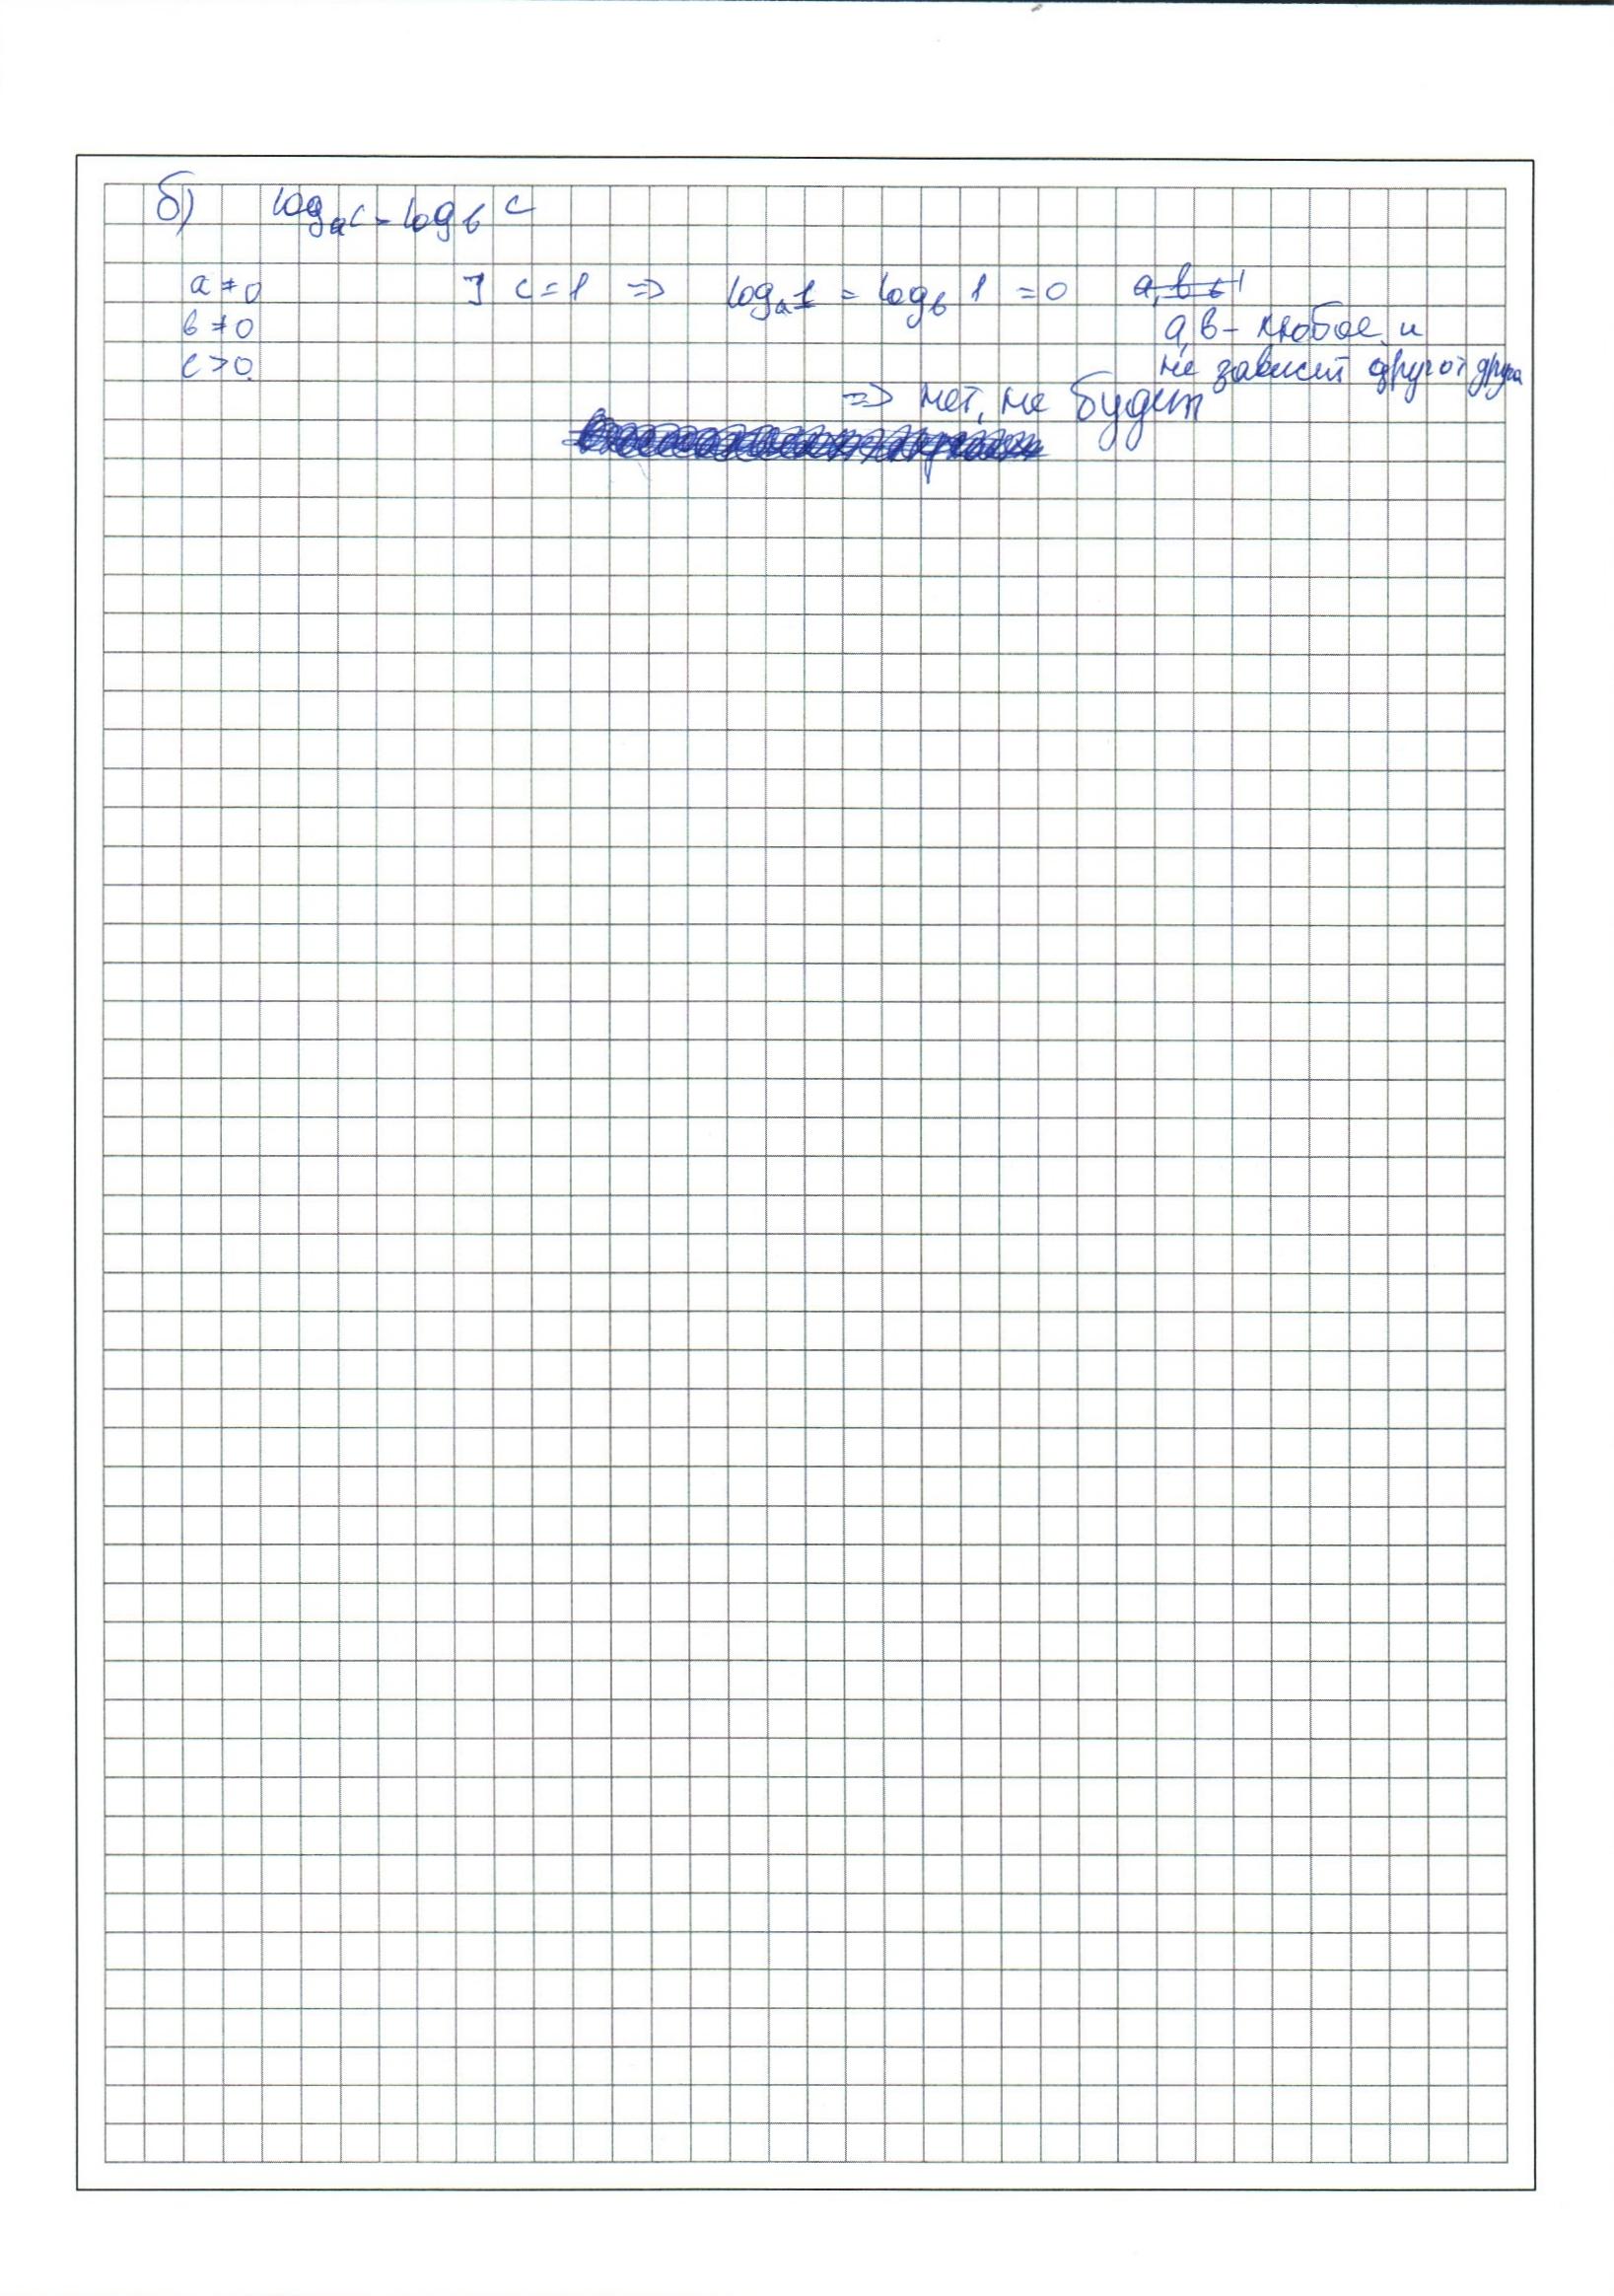 б) log_a c = log_b c
a ≠ 0 ] c = 1 => log_a 1 = log_b 1 = 0
b ≠ 0 a, b – любое и
c > 0 не зависит друг от друга
=> нет, не будет